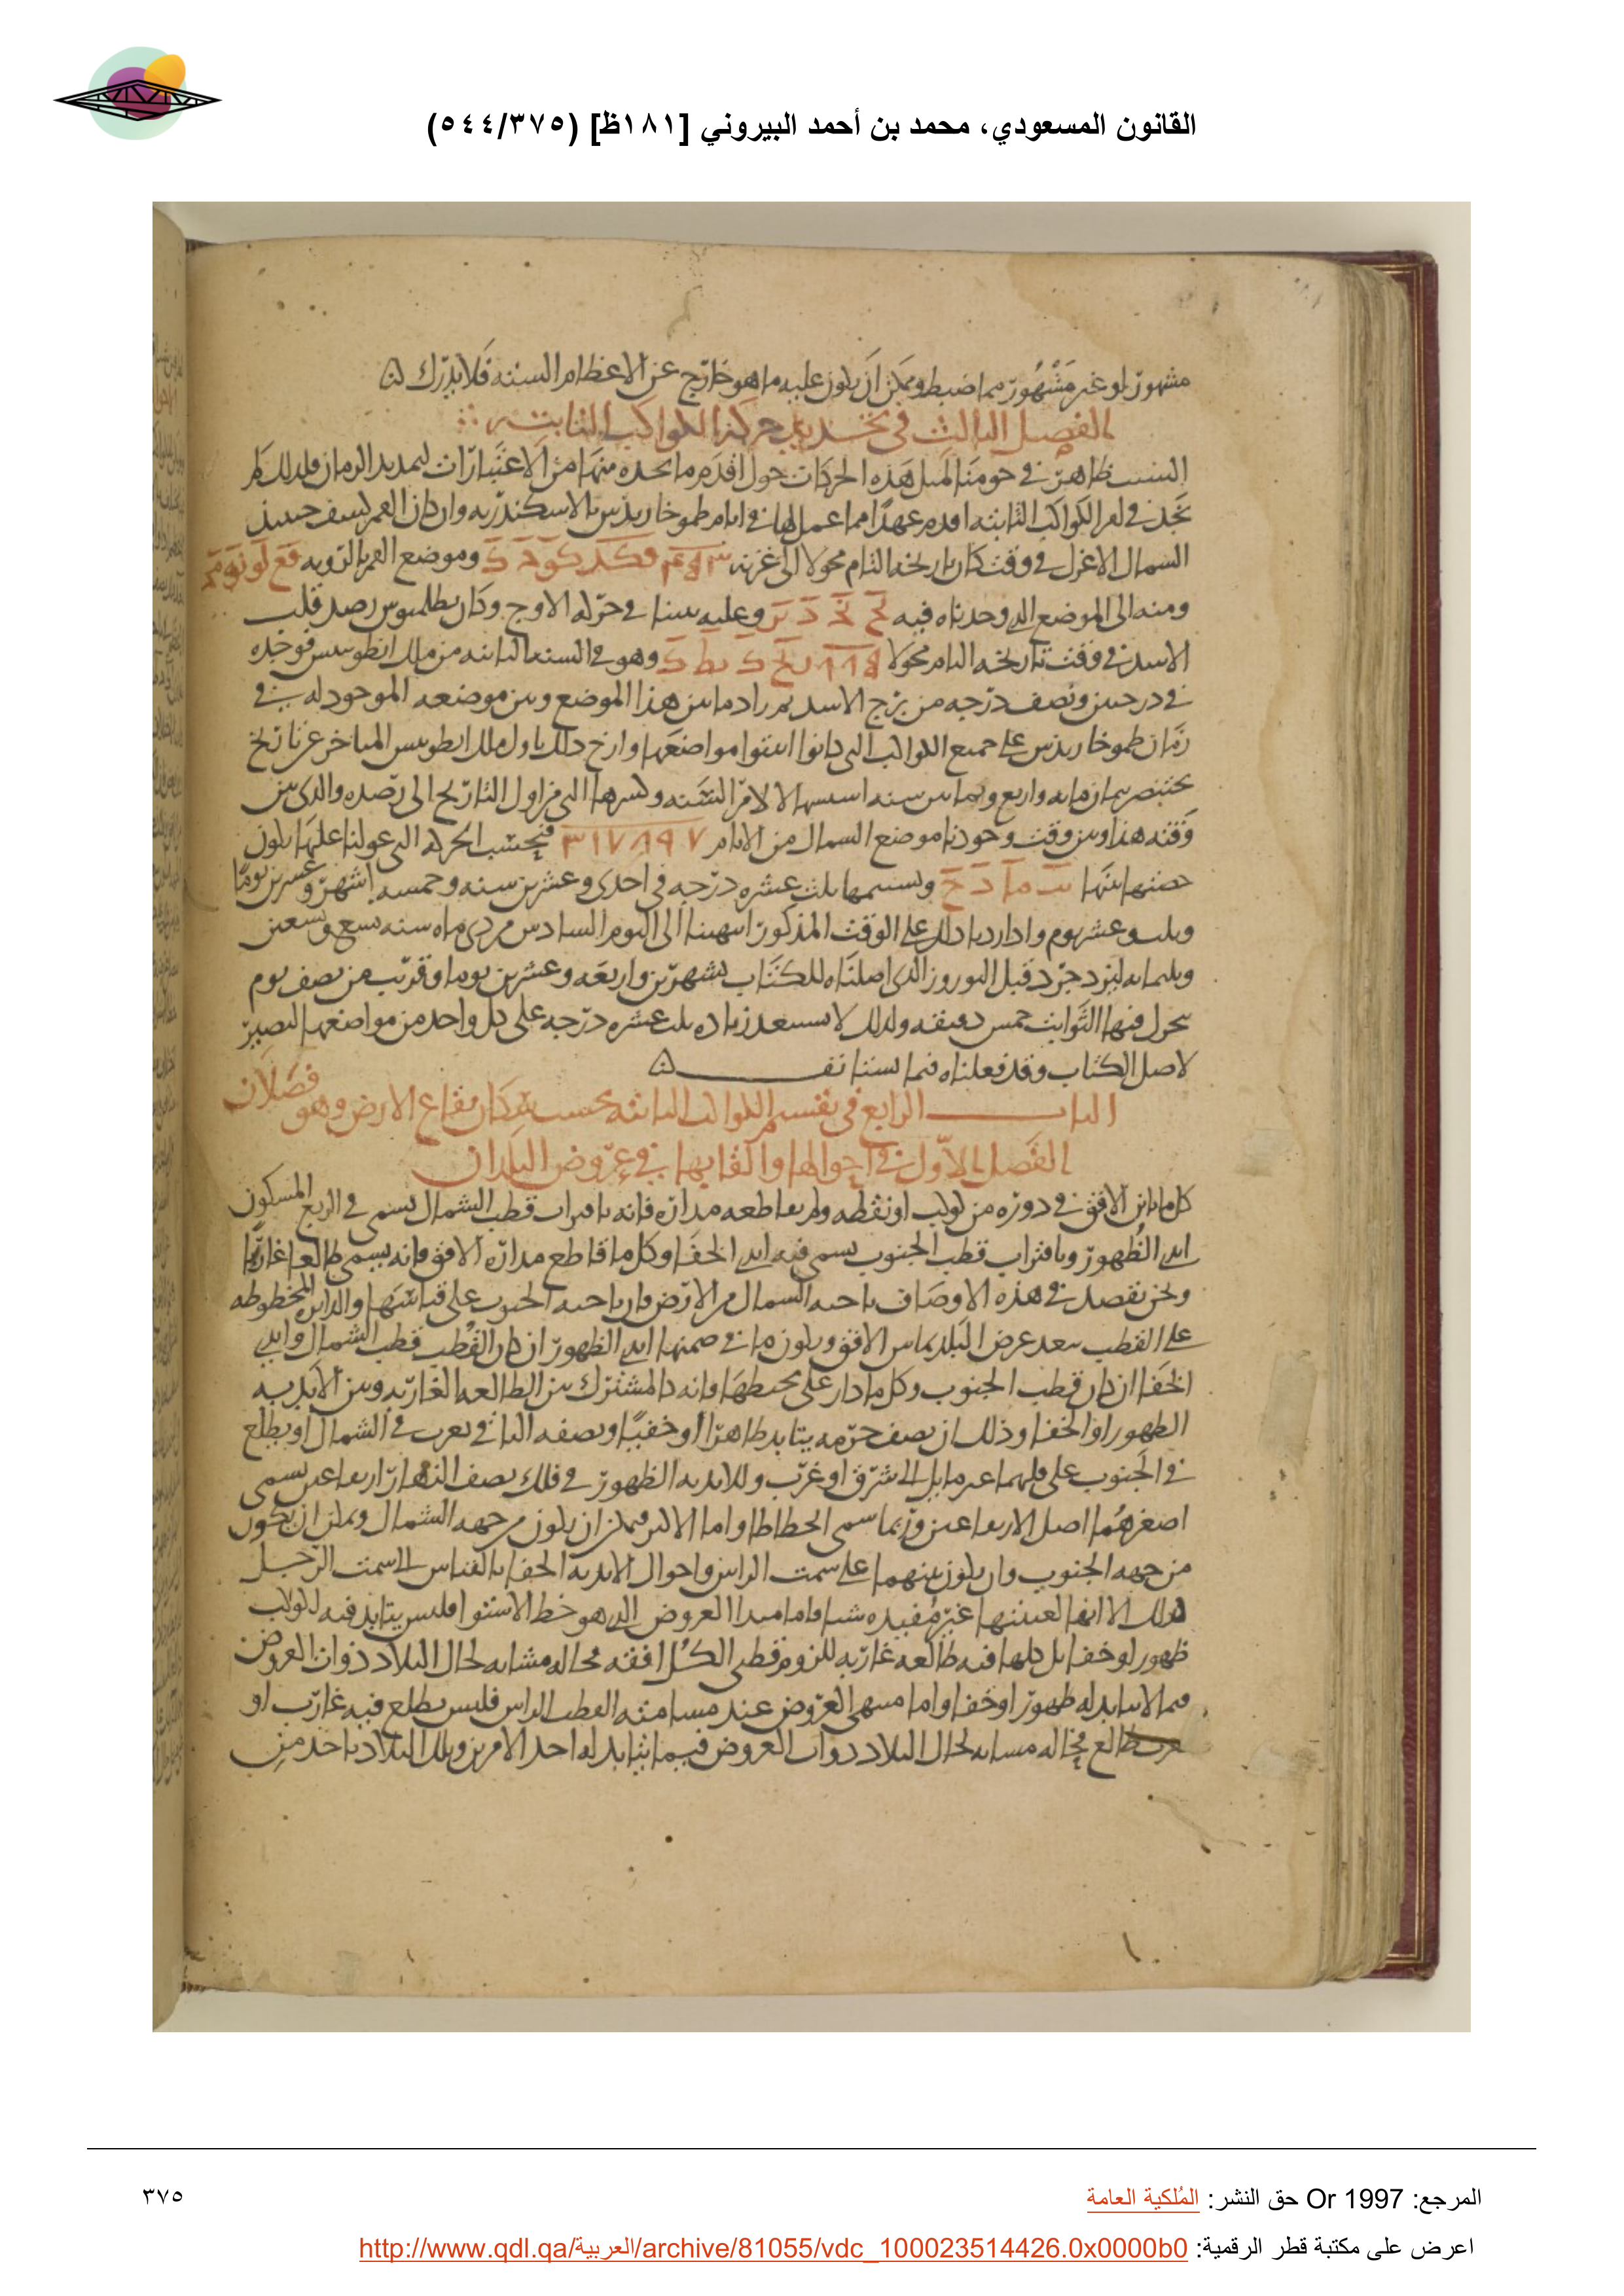 القانون المسعودي، محمد بن أحمد البيروني [١٨١ظ] (٥٤٤/٣٧٥)
مشهور لو غير مشهور مما ضبط ويمكن أن يكون عليه ما هو خارج عن الاعظام الستة فلا يدرك
الفصل الثالث في تحديد حركة الكواكب الثابتة
السبب ظاهر في حومنا لمثل هذه الحركات حول اقدم ما نجده منها من الاعتبارات ليمتد بد الزمان فلذلك لم
نجد في امر الكواكب الثابتة اقدم عهدا مما عمل لها في ايام طيموخاريدس بالاسكندرية وان كان القمر كسف حينئذ
السماك الاعزل في وقت كان تاريخه التام محولا الى غزنة وموضع القمر بالرؤية
ومنه الى الموضع الذي وجدناه فيه وعليه بنينا في حركة الاوج وكان بطلميوس رصد قلب
الاسد في وقت تاريخه التام محولا وهو في السنة الثانية من ملك انطونينس فوجده
في درجتين ونصف درجة من برج الاسد ثم زاد ما بين هذا الموضع وبين موضعه الموجود له في
زمان طيموخاريدس على جميع الكواكب التي كانوا اثبتوا مواضعها وارخ ذلك باول ملك انطونينس المتاخر عن تاريخ
بختنصر بثمان مائة واربع وثمانين سنة السنة وكسرها التي من اول التاريخ الى رصده والذي بين
وقته هذا وبين وقت وجودنا موضع السماك من الايام ٣١٧٨٩٧ فبحسب الحركة التي عولنا عليها يكون
حصتها منها ونسميها ثلث عشرة درجة في احدى وعشرين سنة وخمسة اشهر وعشرين يوما
وثلث وعشر يوم واذا زدنا ذلك على الوقت المذكور انتهينا الى اليوم السادس من دي ماه سنة تسع وتسعين
وثلثمائة ليزدجرد قبل النوروز الذي اصلناه للكتاب بشهرين واربعة وعشرين يوما وقريب من نصف يوم
تحرك فيها الثوابت خمس دقيقة ولذلك لا نستبعد زيادة ثلث عشرة درجة على كل واحد من مواضعها لتصير
لاصل الكتاب وقد فعلناه فيما نستانف
الباب الرابع في تقسيم الكواكب الثابتة بحسب سكان بقاع الارض وهو فصلان
الفصل الاول في احوالها والقابها في عروض البلدان
كل ما باين الافق في دوره من كوكب او نقطة ولم يقاطعه مداره فانه باقتراب قطب الشمال يسمى في الربع المسكون
ابدي الظهور وباقتراب قطب الجنوب يسمى فيه ابدي الخفا وكل ما قاطع مداره الافق فانه يسمى طالعا غاربا
ونحن نقصد في هذه الاوصاف ناحية الشمال من الارض فان ناحية الجنوب على قياسها والدائرة المخطوطة
على القطب ببعد عرض البلد يماس الافق ويكون ما في ضمنها ابدي الظهور ان كان القطب قطب الشمال وابدي
الخفا ان كان قطب الجنوب وكل ما دار على محيطها فانه كالمشترك بين الطالعة الغاربة وبين الابدية
الظهور او الخفا وذلك ان نصف جرمه يتابد ظاهرا او خفيا ونصفه الثاني يغرب في الشمال او يطلع
في الجنوب على كليهما غير مايل الى شرق او غرب وللابدية الظهور في فلك نصف النهار ارتفاعان يسمى
اصغرهما اصل الارتفاعين وربما سمي انحطاطا واما الاكبر فيمكن ان يكون من جهة الشمال ويمكن ان يكون
من جهة الجنوب وان يكون بينهما على سمت الراس واحوال الابدية الخفا بالقياس الى سمت الرجل
كذلك الا انها لغيبتها غير مفيدة شيا فاما مبدا العروض الذي هو خط الاستوا فليس يتابد فيه لكوكب
ظهور او خفا بل كلها فيه طالعة غاربة للزوم قطبي الكل افقه فحاله مشابه لحال البلاد ذوات العروض
فيما لا يتابد له ظهور او خفا واما منتهى العروض عند مسامتة القطب الراس فليس يطلع فيه غارب او
يغرب طالع فحاله مشابه لحال البلاد ذوات العروض فيما يتابد له احد الامرين وتلك البلاد تاخذ من
المرجع: Or 1997 حق النشر: المُلكية العامة
٣٧٥
اعرض على مكتبة قطر الرقمية: http://www.qdl.qa/العربية/archive/81055/vdc_100023514426.0x0000b0